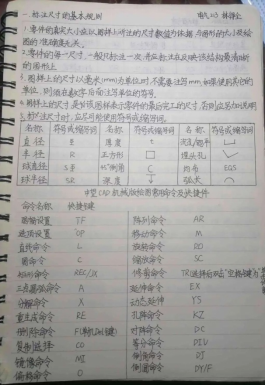 一、标注尺寸的基本规则
1.零件的真实大小应以图样上所注的尺寸数值为依据,与图形的大小及绘
图的准确度无关。
2.零件的每一尺寸,一般只标注一次,并应标注在反映该结构最清晰
的图形上。
3.图样上的尺寸以毫米(mm)为单位时,不需要注写mm,如果使用其它的
单位,则须在数字后面注写单位的符号。
4.图样上的尺寸是对该图样表示零件的最后完工的尺寸,否则应另加说明
5.标注尺寸时,应尽可能使用符号或缩写词。
名称 符号或缩写词 名称 符号或缩写词 名称 符号或缩写词
直径 厚度 t 沉孔/锪平
半径 R 正方形 □ 埋头孔
球直径 45°倒角 C 均布 EQS
球半径 SR 深度 弧长
中望CAD机械版绘图常用命令及快捷键
命令名称 快捷键
图幅设置 TF 阵列命令 AR
选项设置 OP 移动命令 M
直线命令 L 旋转命令 RO
圆命令 C 缩放命令 SC
矩形命令 REC/JX 修剪命令
A 延伸命令 EX
分解命令 X 动态延伸 YS
重生成命令 RE 孔阵命令 KZ
对称命令 DC
复制选择 CO 等分命令 DIV
镜像命令 MI 倒角命令 DJ
偏移命令 O 倒圆命令 DY/F